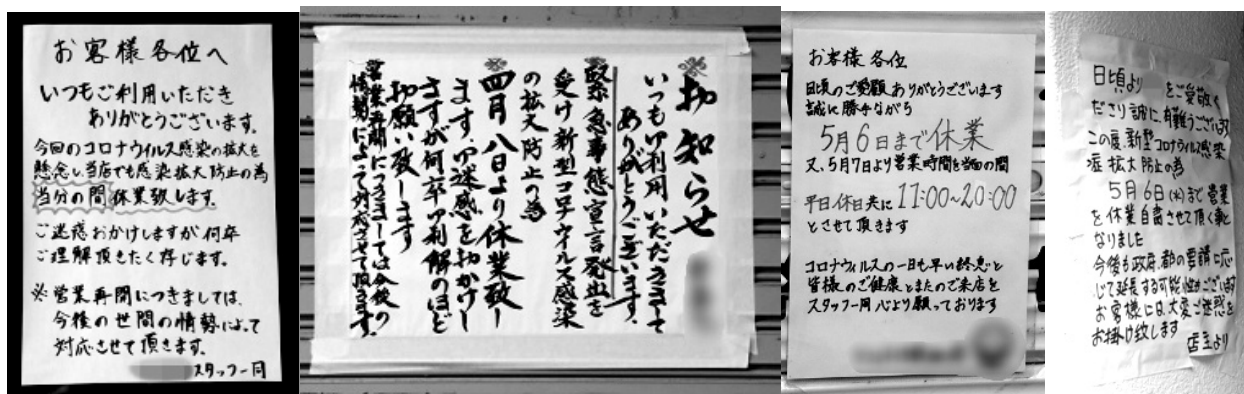 お客様各位へ
いつもご利用いただき
ありがとうございます。
今回のコロナウイルス感染の拡大を
懸念し、当店でも感染拡大防止の為
当分の間休業致します。
ご迷惑おかけしますが何卒
ご理解頂きたく存じます。
※営業再開につきましては、
今後の世間の情勢によって
対応させて頂きます。
スタッフ一同
お知らせ
いつも御利用いただきまして
ありがとうございます。
緊急事態宣言発出を
受け新型コロナウイルス感染
の拡大防止の為
四月八日より休業致し
ます。御迷惑をおかけし
ますが何卒御理解のほど
お願い致します
営業再開につきましては今後の
情勢によって対応させて頂きます。
お客様各位
日頃のご愛顧ありがとうございます
誠に勝手ながら
5月6日まで休業
又、5月7日より営業時間を当面の間
平日休日共に11:00~20:00
とさせて頂きます
コロナウィルスの一日も早い終息と
皆様のご健康とまたのご来店を
スタッフ一同心より願っております
日頃より をご愛敬く
ださり誠に有難うございます
この度、新型コロナウィルス感染
症拡大防止の為
5月6日(水)まで営業
を休業自粛させて頂く事と
なりました
今後も政府、都の要請に応
じて延長する可能性がございます
お客様には大変ご迷惑を
お掛け致します
店主より